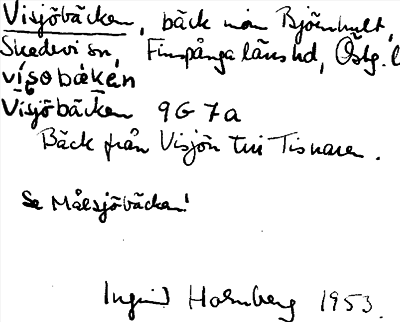 Visjöbäcken, bäck inom Björnhult,
Skedevi sn, Finspånga läns hd, Östg. l
visobäkən
Visjöbäcken 9G 7a
Bäck från Visjön till Tisnaren.
Se Målsjöbäcken!
Ingrid Holmberg 1953.